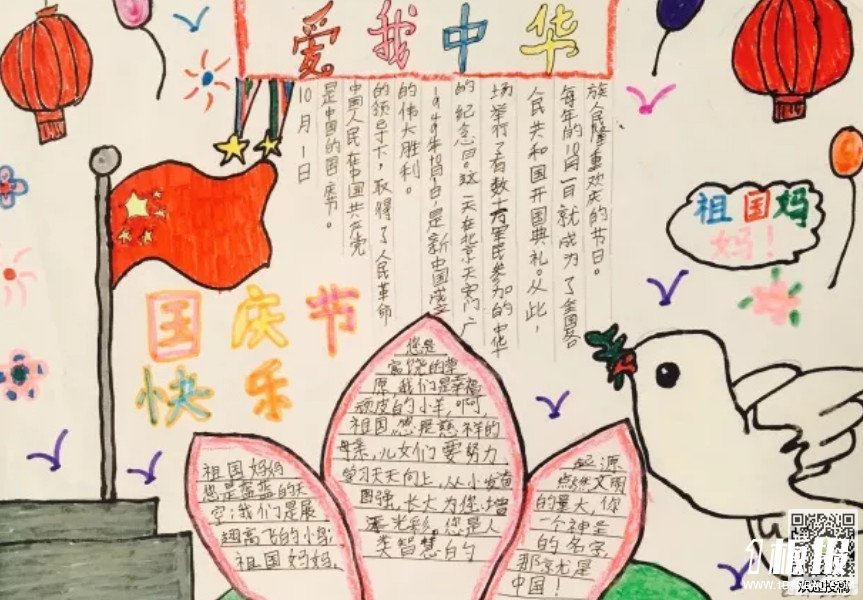 爱我中华
10月1日
是中国的国庆节。
中国人民在中国共产党
的领导下，取得了人民革命
的伟大胜利。
1949年10月1日，是新中国成立
的纪念日。这一天在北京天安门广
场举行了有数十万军民参加的中华
人民共和国开国典礼。从此，
每年的10月一日就成为了全国各
族人民隆重欢庆的节日。
祖国妈
妈！
国庆节
快乐
祖国妈妈
您是蓝蓝的天
空；我们是展
翅高飞的小鸟；
祖国妈妈，
您是
富饶的草
原，我们是幸福
顽皮的小羊，啊，
祖国您是慈祥的
母亲，儿女们要努力
学习天天向上，从小发奋
图强，长大为您增
添光彩，您是人
类智慧的
起源
点燃文明
的量大，你
一个神圣
的名字，
那就是
中国！
板报
欢迎投稿